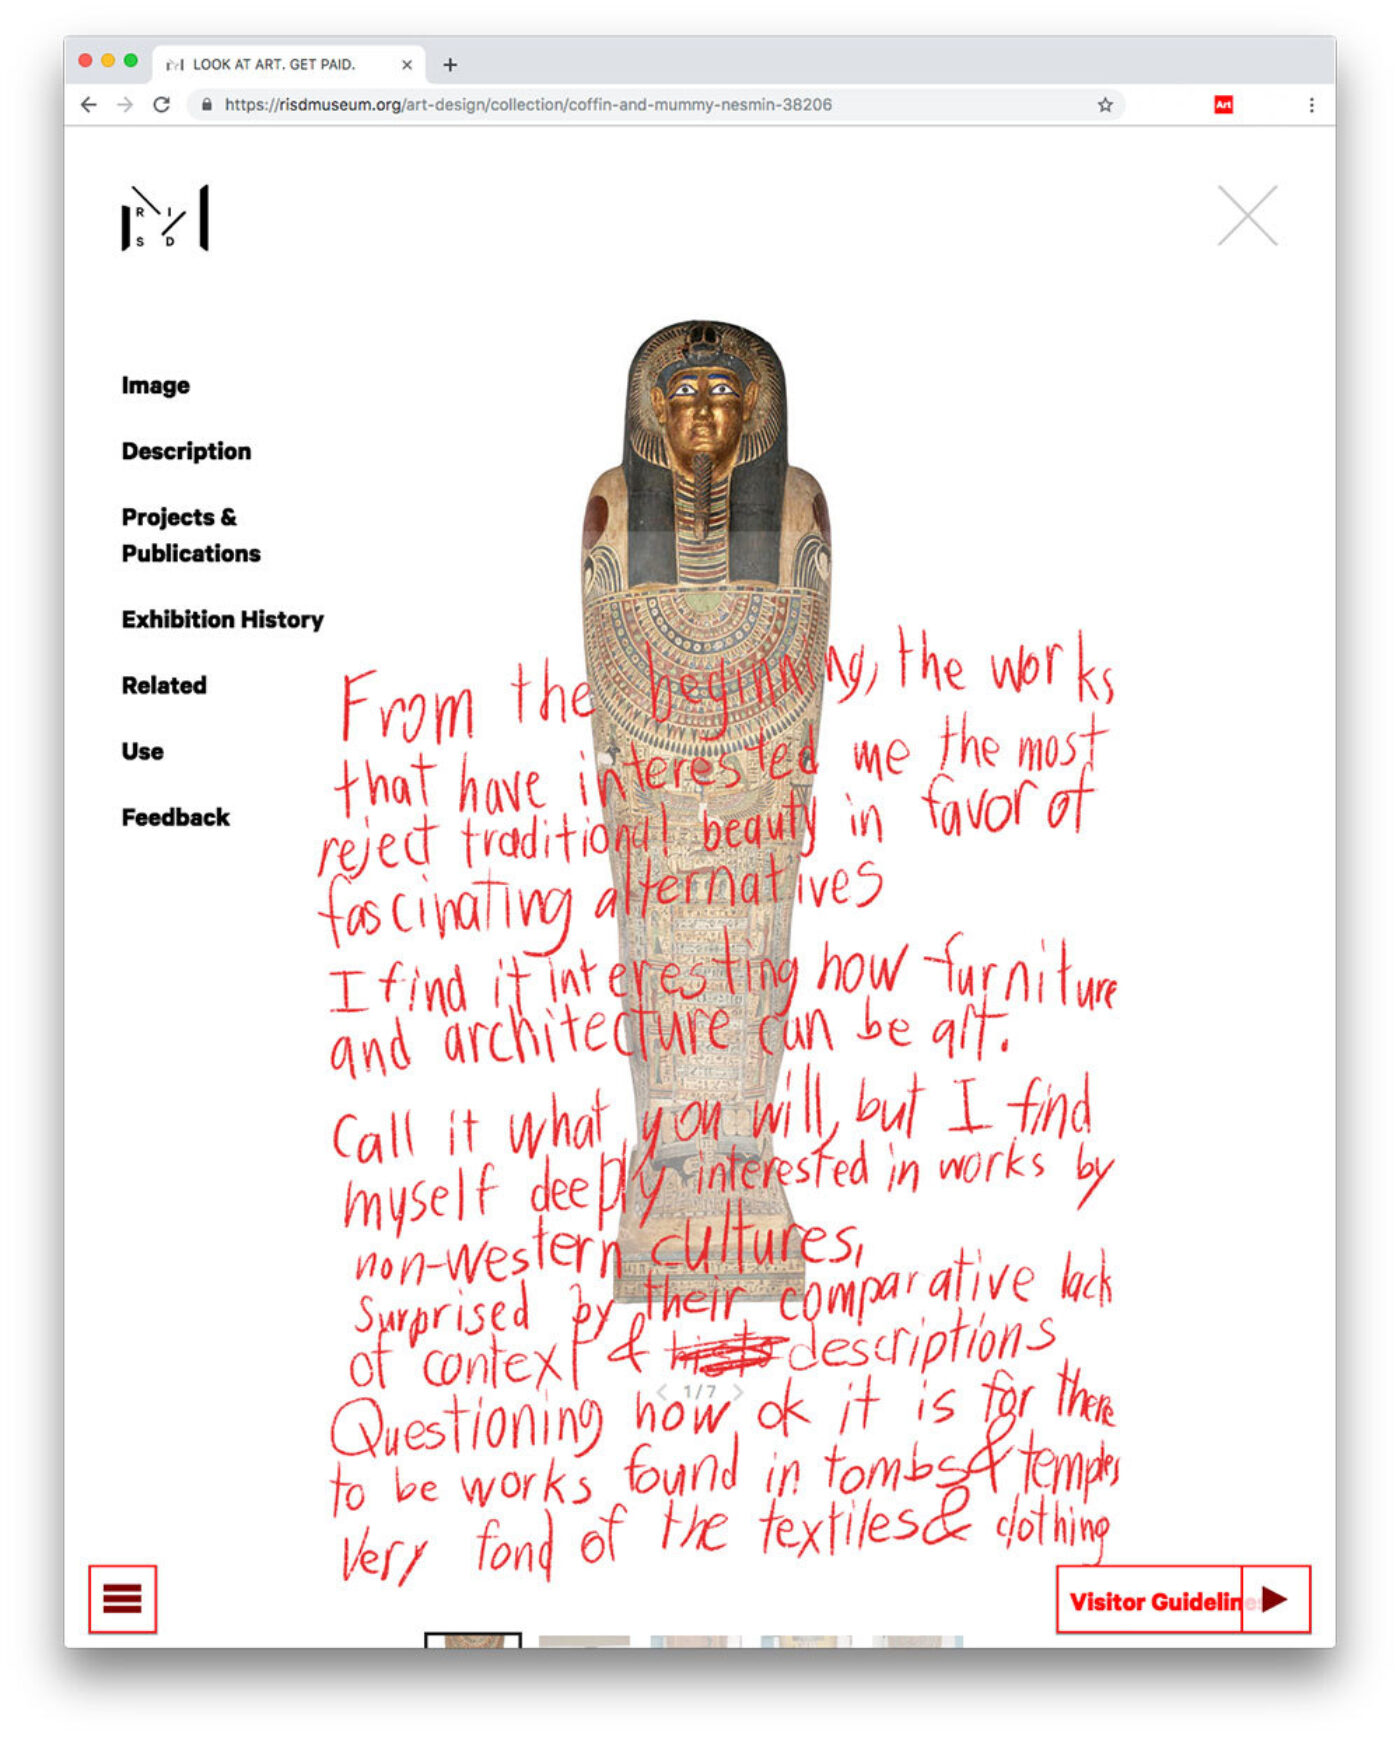 LOOK AT ART. GET PAID.
https://risdmuseum.org/art-design/collection/coffin-and-mummy-nesmin-38206
Art
R I
S D
Image
Description
Projects &
Publications
Exhibition History
Related
Use
Feedback
From the beginning, the works
that have interested me the most
reject traditional beauty in favor of
fascinating alternatives
I find it interesting how furniture
and architecture can be art.
Call it what you will, but I find
myself deeply interested in works by
non-western cultures,
Surprised by their comparative lack
of context & descriptions
1/7
Questioning how ok it is for there
to be works found in tombs & temples
Very fond of the textiles & clothing
Visitor Guidelines